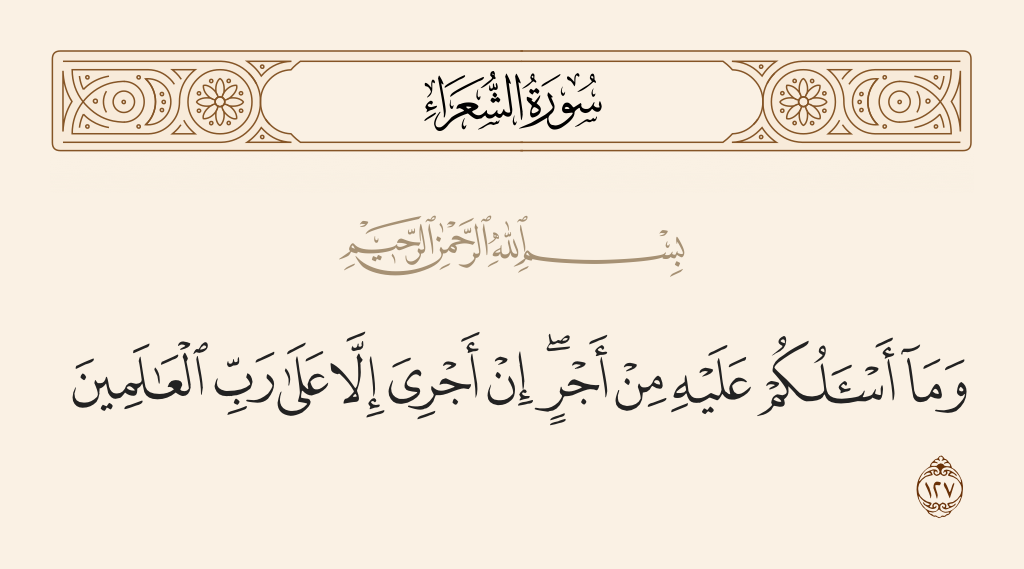 سُورَةُ الشُّعَرَاءِ
بِسْمِ ٱللَّهِ ٱلرَّحْمَٰنِ ٱلرَّحِيمِ
وَمَآ أَسْـَٔلُكُمْ عَلَيْهِ مِنْ أَجْرٍ ۖ إِنْ أَجْرِىَ إِلَّا عَلَىٰ رَبِّ ٱلْعَـٰلَمِينَ
١٢٧